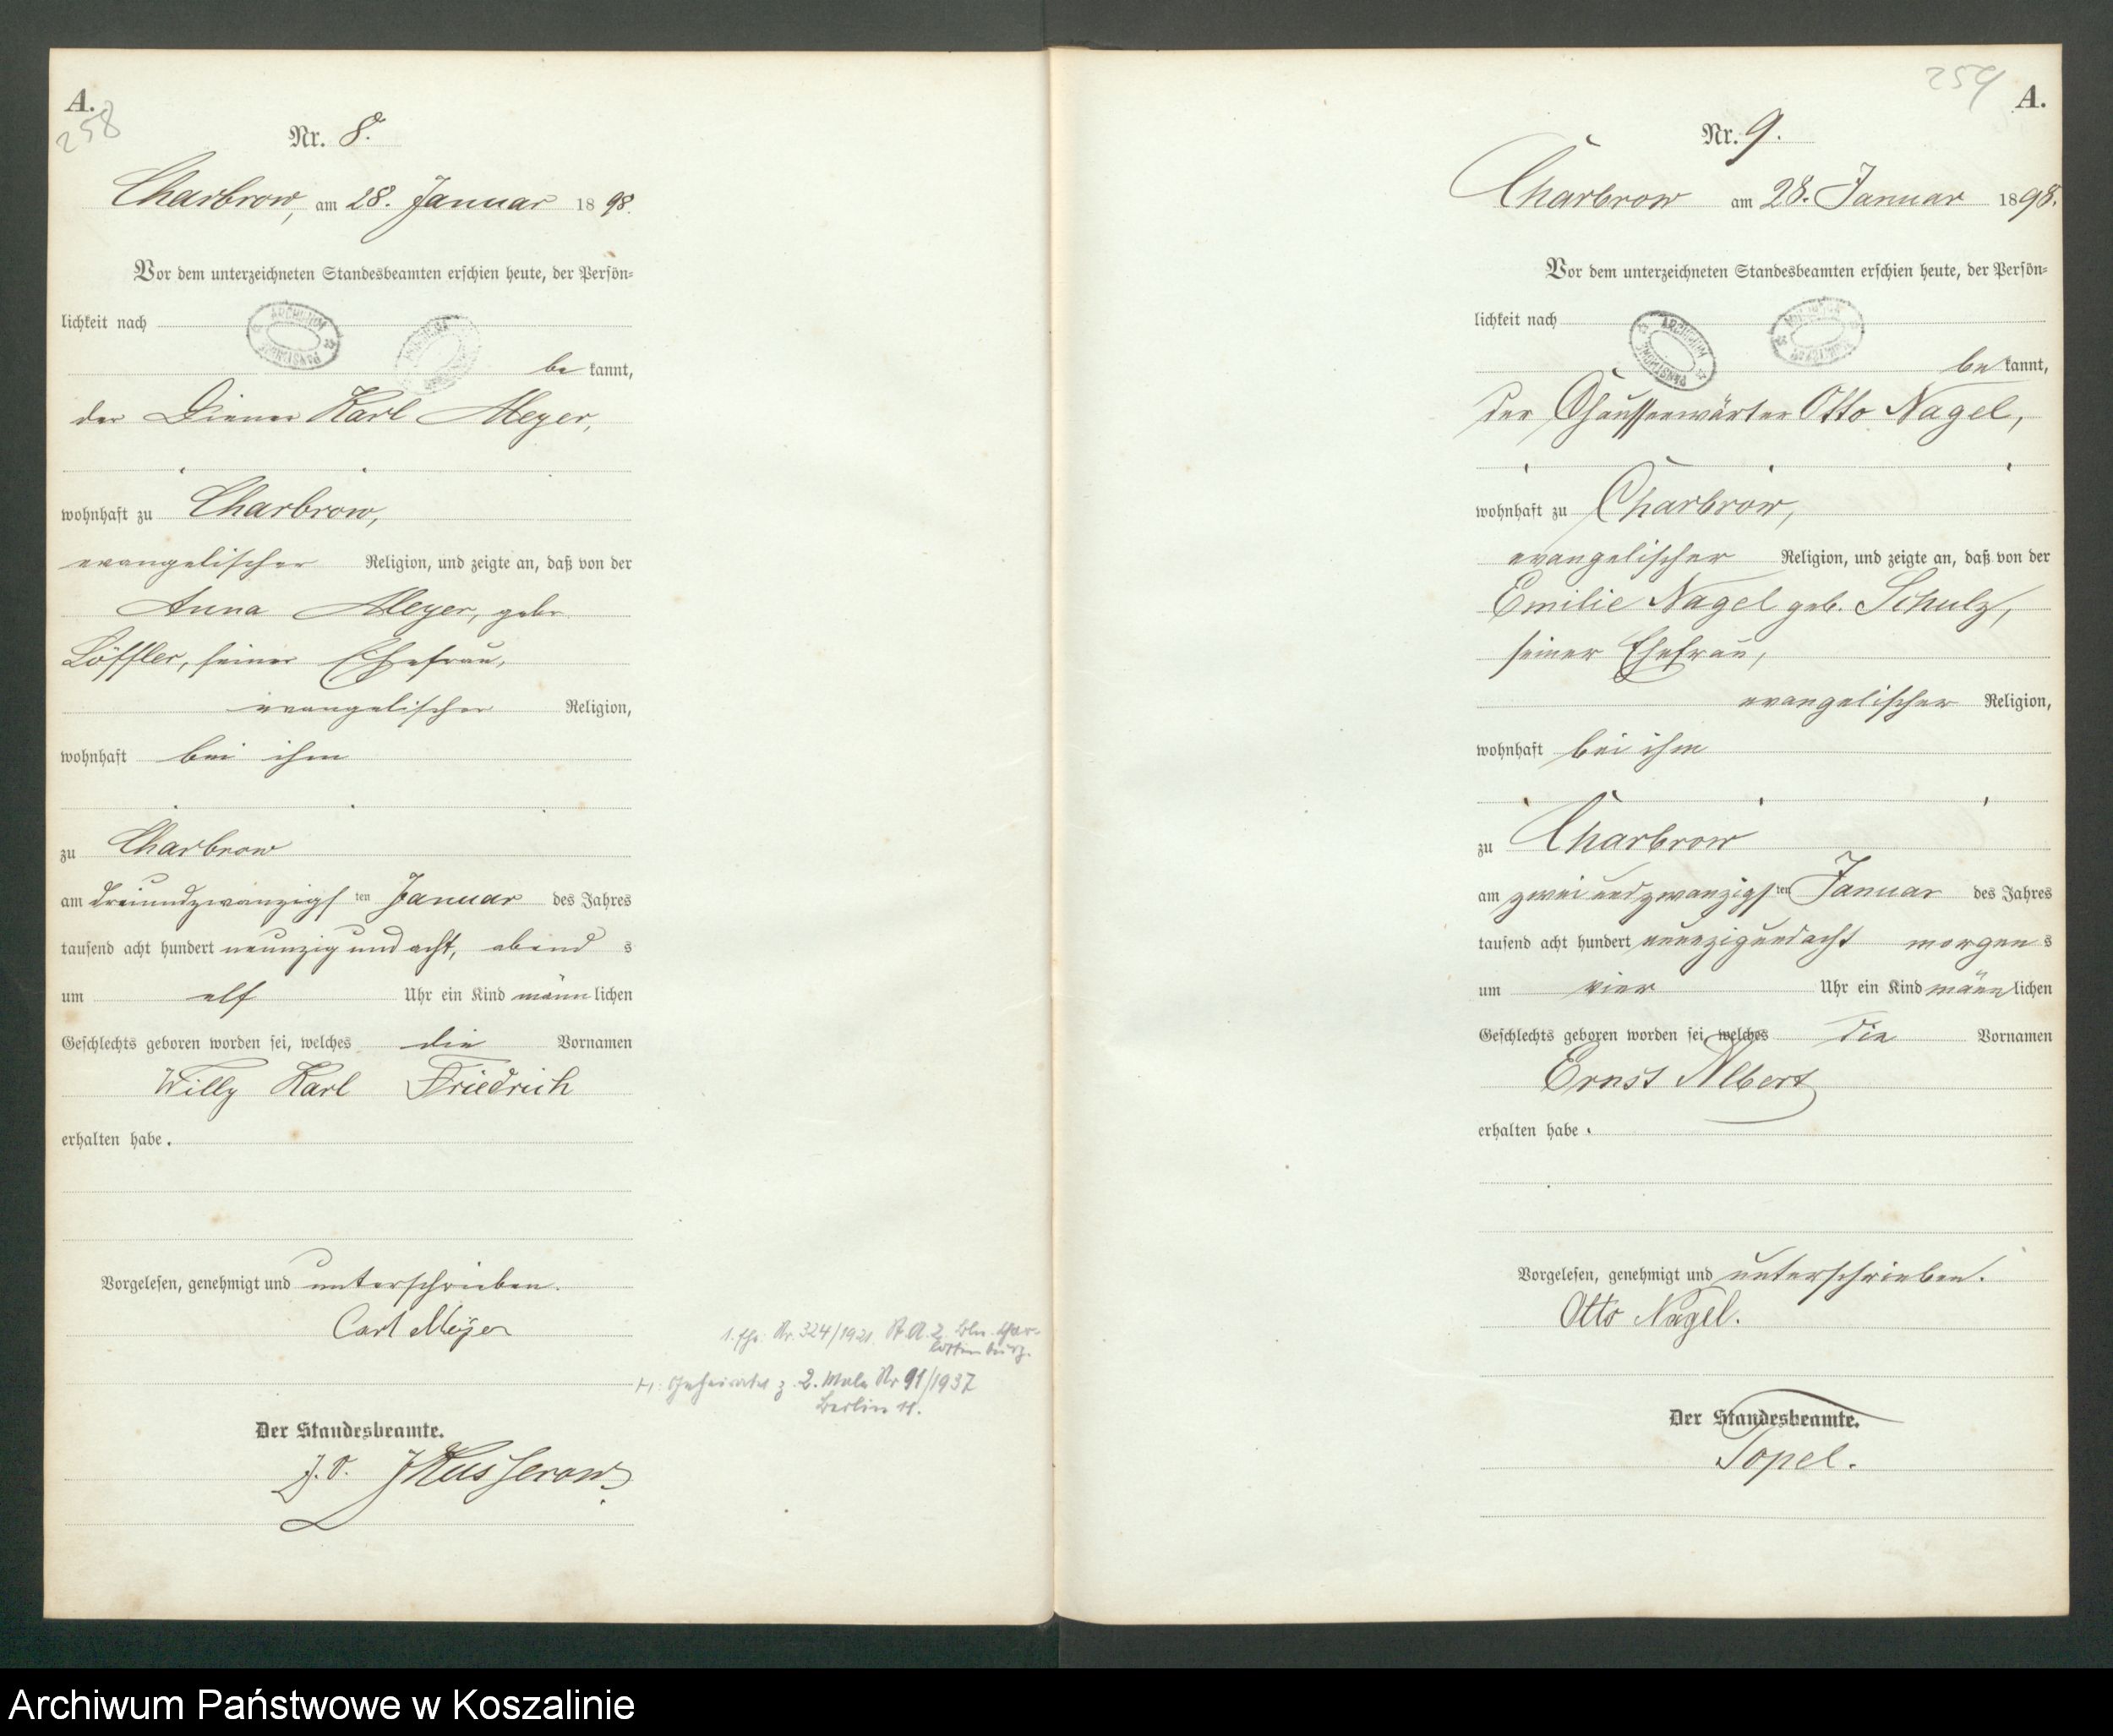 A.
258
Nr. 8.
Charbrow, am 28. Januar 1898.
Vor dem unterzeichneten Standesbeamten erschien heute, der Persön-
lichkeit nach
ARCHIWUM PAŃSTWOWE
be kannt,
der Diener Karl Meyer,
wohnhaft zu Charbrow,
evangelischer Religion, und zeigte an, daß von der
Anna Meyer, geb.
Löffler, seiner Ehefrau,
evangelischer Religion,
wohnhaft bei ihm
zu Charbrow
am dreiundzwanzigsten Januar des Jahres
tausend acht hundert neunzig und acht, abend s
um elf Uhr ein Kind männlichen
Geschlechts geboren worden sei, welches die Vornamen
Willy Karl Friedrich
erhalten habe.
Vorgelesen, genehmigt und unterschrieben.
Carl Meyer
Der Standesbeamte.
J. V. Kusserow
1. Ehe Nr. 324/1921. St. A. 2 Bln. Char-
lottenburg.
H. Geheiratet z. 2. Male Nr 91/1937
Berlin
259
A.
Nr. 9.
Charbrow am 28. Januar 1898.
Vor dem unterzeichneten Standesbeamten erschien heute, der Persön-
lichkeit nach
ARCHIWUM PAŃSTWOWE
be kannt,
der Chausseewärter Otto Nagel,
wohnhaft zu Charbrow,
evangelischer Religion, und zeigte an, daß von der
Emilie Nagel geb. Schulz,
seiner Ehefrau,
evangelischer Religion,
wohnhaft bei ihm
zu Charbrow
am zwei und zwanzigsten Januar des Jahres
tausend acht hundert neunzigundacht morgen s
um vier Uhr ein Kind männlichen
Geschlechts geboren worden sei, welches die Vornamen
Ernst Albert
erhalten habe.
Vorgelesen, genehmigt und unterschrieben.
Otto Nagel.
Der Standesbeamte.
Topel.
Archiwum Państwowe w Koszalinie